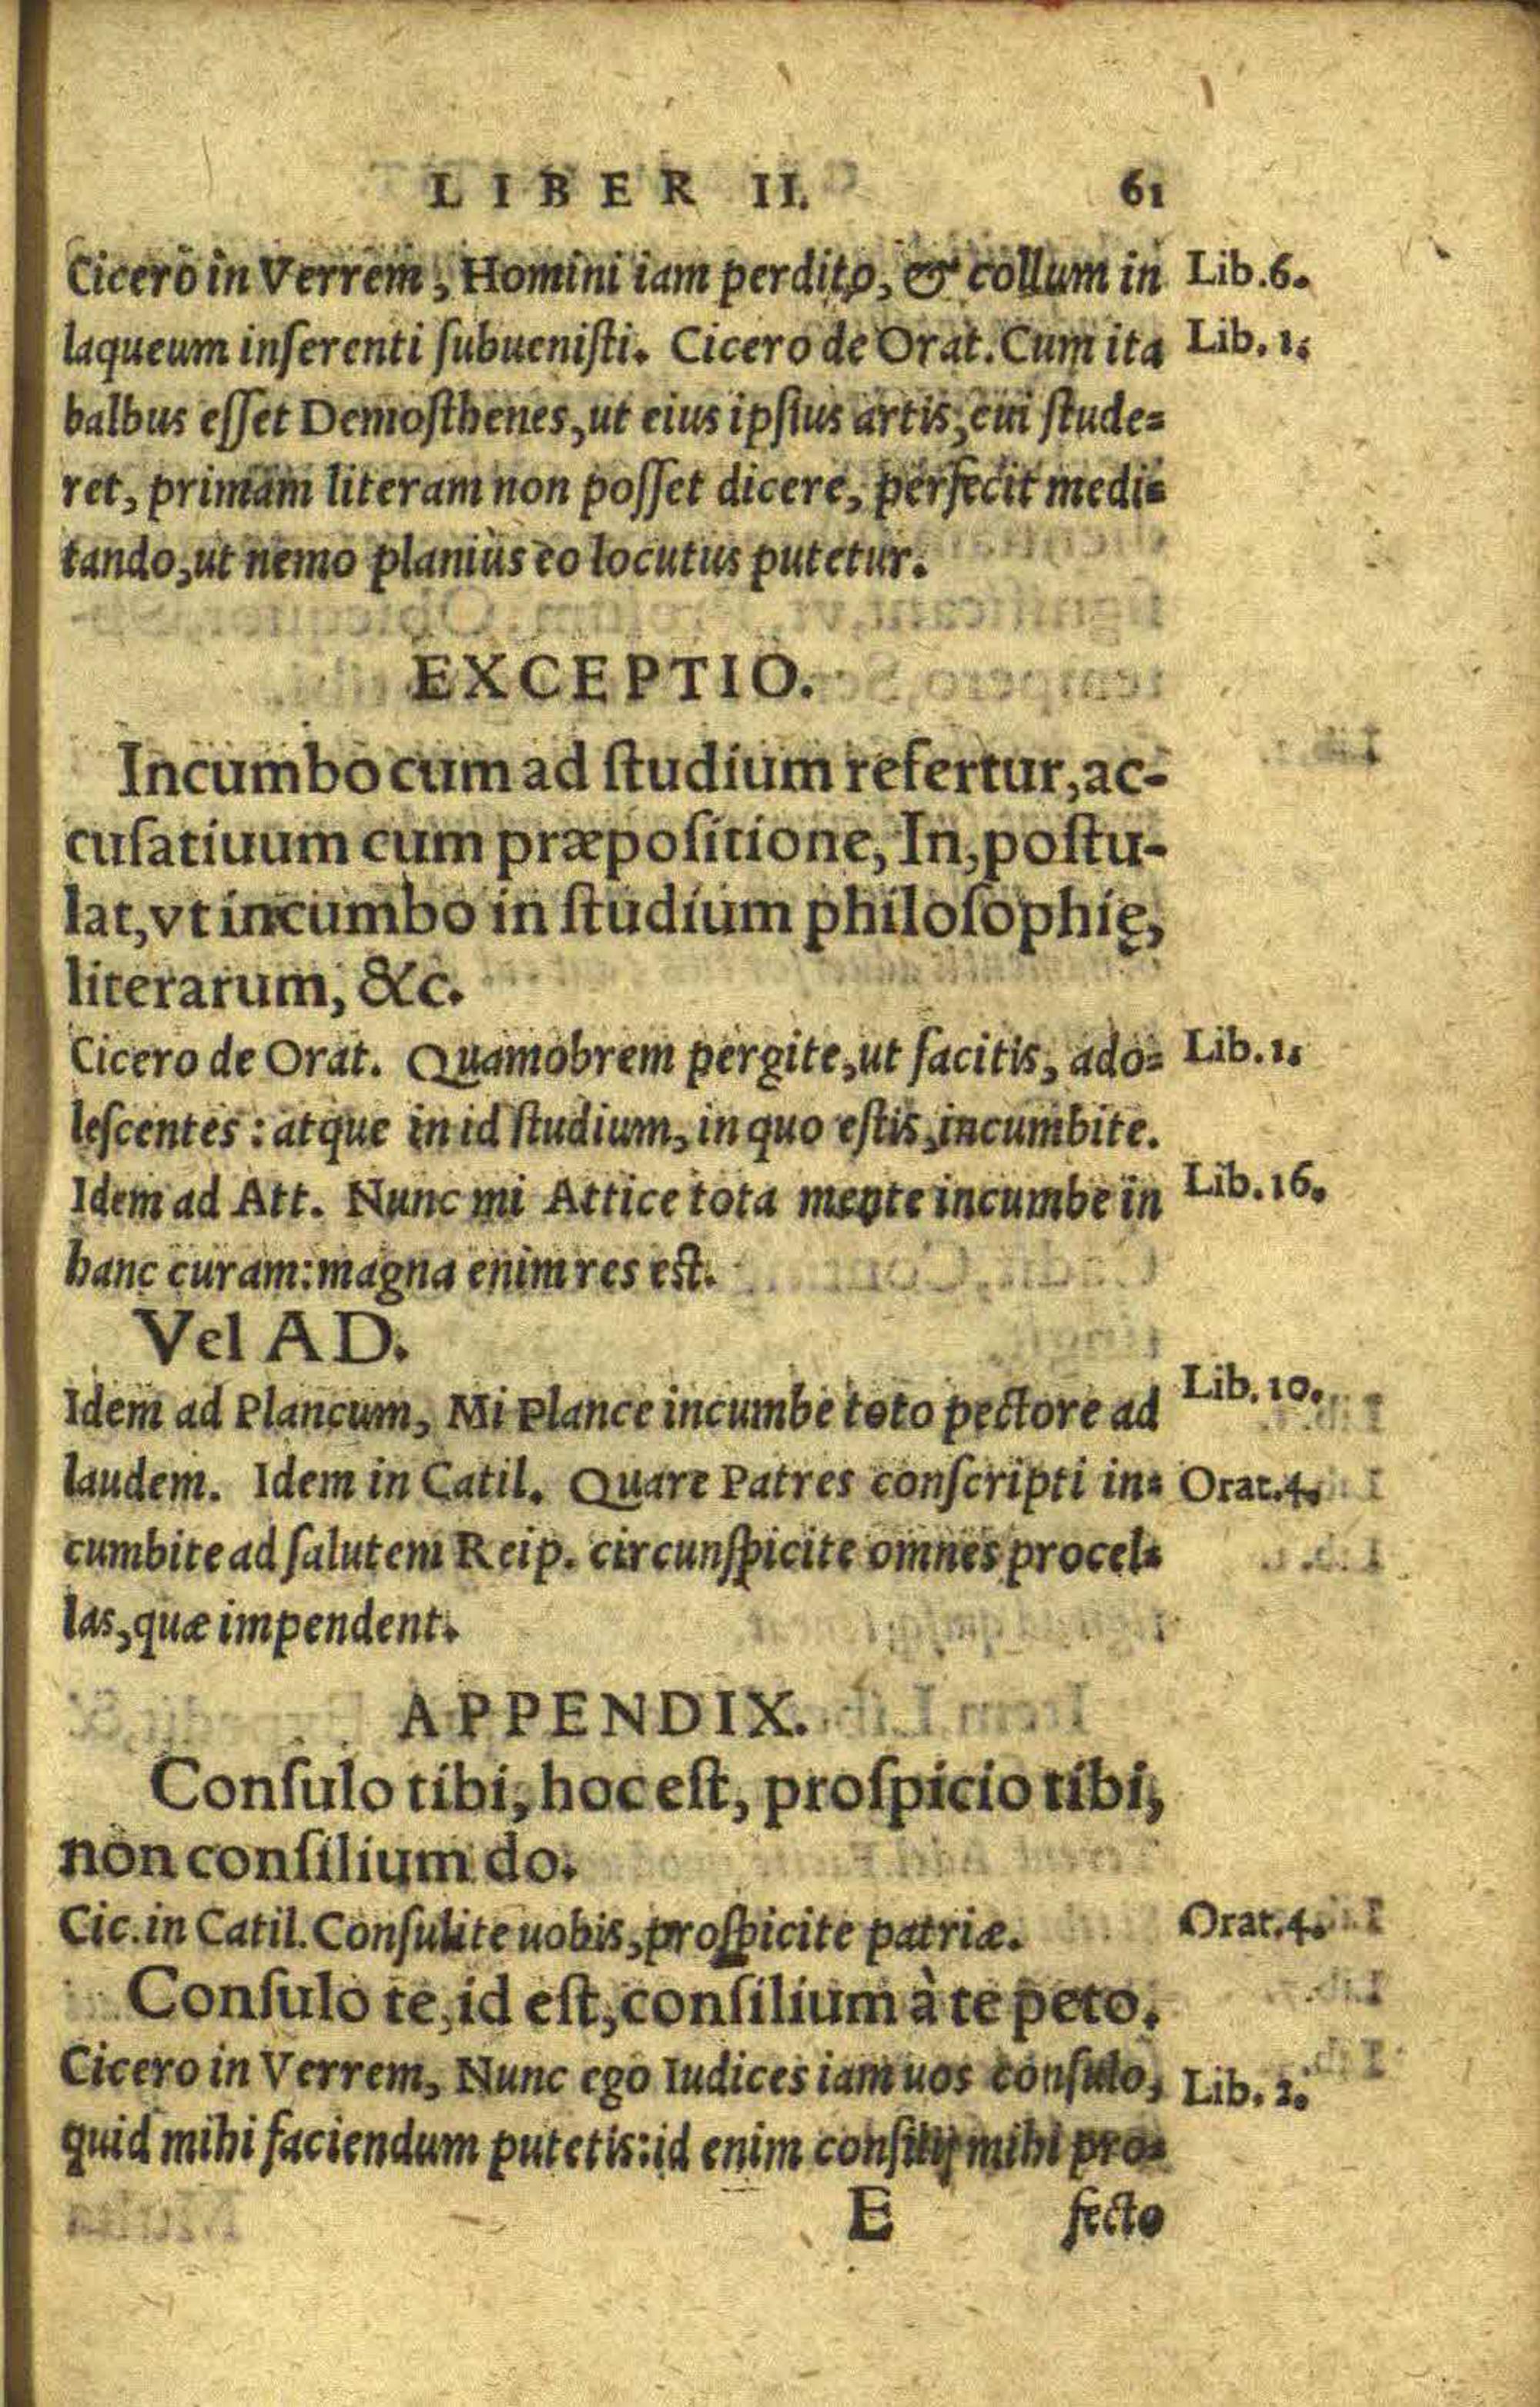 LIBER II. 61
Cicero in Verrem, Homini iam perdito, & collum in Lib.6.
laqueum inſerenti ſubueniſti. Cicero de Orat. Cum ita Lib. 1.
balbus eſſet Demoſthenes, ut eius ipſius artis, cui ſtude=
ret, primam literam non poſſet dicere, perfecit medi=
tando, ut nemo planiùs eo locutus putetur.
EXCEPTIO.
Incumbo cum ad ſtudium refertur, ac-
cuſatiuum cum præpoſitione, In, poſtu-
lat, vt incumbo in ſtudium philoſophię,
literarum, &c.
Cicero de Orat. Quamobrem pergite, ut facitis, ado= Lib.1.
leſcentes: atque in id ſtudium, in quo eſtis, incumbite.
Idem ad Att. Nunc mi Attice tota mente incumbe in Lib.16.
hanc curam: magna enim res eſt.
Vel AD.
Idem ad Plancum, Mi Plance incumbe toto pectore ad Lib.10.
laudem. Idem in Catil. Quare Patres conſcripti in= Orat.4.
cumbite ad ſalutem Reip. circunſpicite omnes procel=
las, quæ impendent.
APPENDIX.
Conſulo tibi, hoc eſt, proſpicio tibi,
non conſilium do.
Cic. in Catil. Conſulite uobis, proſpicite patriæ. Orat.4.
Conſulo te, id eſt, conſilium à te peto.
Cicero in Verrem, Nunc ego Iudices iam uos conſulo, Lib. 2.
quid mihi faciendum putetis: id enim conſilij mihi pro=
E fecto